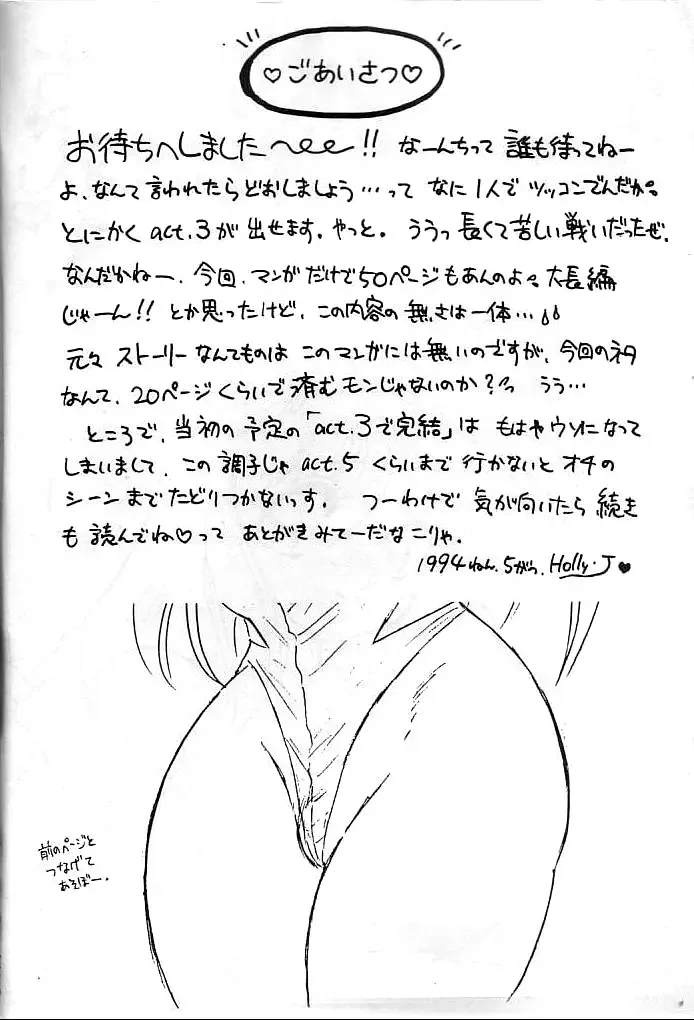 ♡ごあいさつ♡
お待ちへしました〜!! なーんちって 誰も待ってねー
よ、なんて言われたらどおしましょう…って なに1人でツッコンでんだか。
とにかく act.3が 出せます。やっと。ううっ 長くて苦しい戦いだったぜ。
なんだかねー、今回、マンガだけで50ページもあんのよ。大長編
じゃーん!! とか思ったけど、この内容の無さは一体…
元々 ストーリーなんてものは このマンガには無いのですが、今回のネタ
なんて、20ページくらいで済むモンじゃないのか?っ うう…
ところで、当初の予定の「act.3で完結」は もはやウソになって
しまいまして、この調子じゃ act.5 くらいまで行かないと オチの
シーンまでたどりつかないっす。 つーわけで 気が向いたら続き
も 読んでね♡って あとがきみてーだな こりゃ。
1994ねん.5がつ. Holly・J♥
前のページと
つなげて
あそぼー.